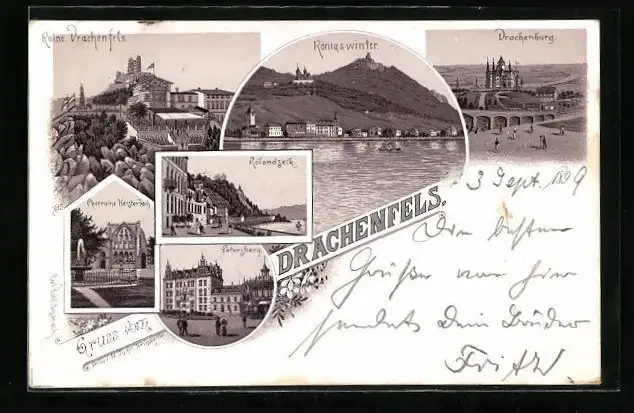 Ruine Drachenfels.
Königswinter.
Drachenburg.
Rolandseck
Chorruine Heisterbach
Petersberg.
Gruss vom
DRACHENFELS.
3 Sept. 189
Die besten
Grüße von hier
sendet Dein Bruder
Fritz